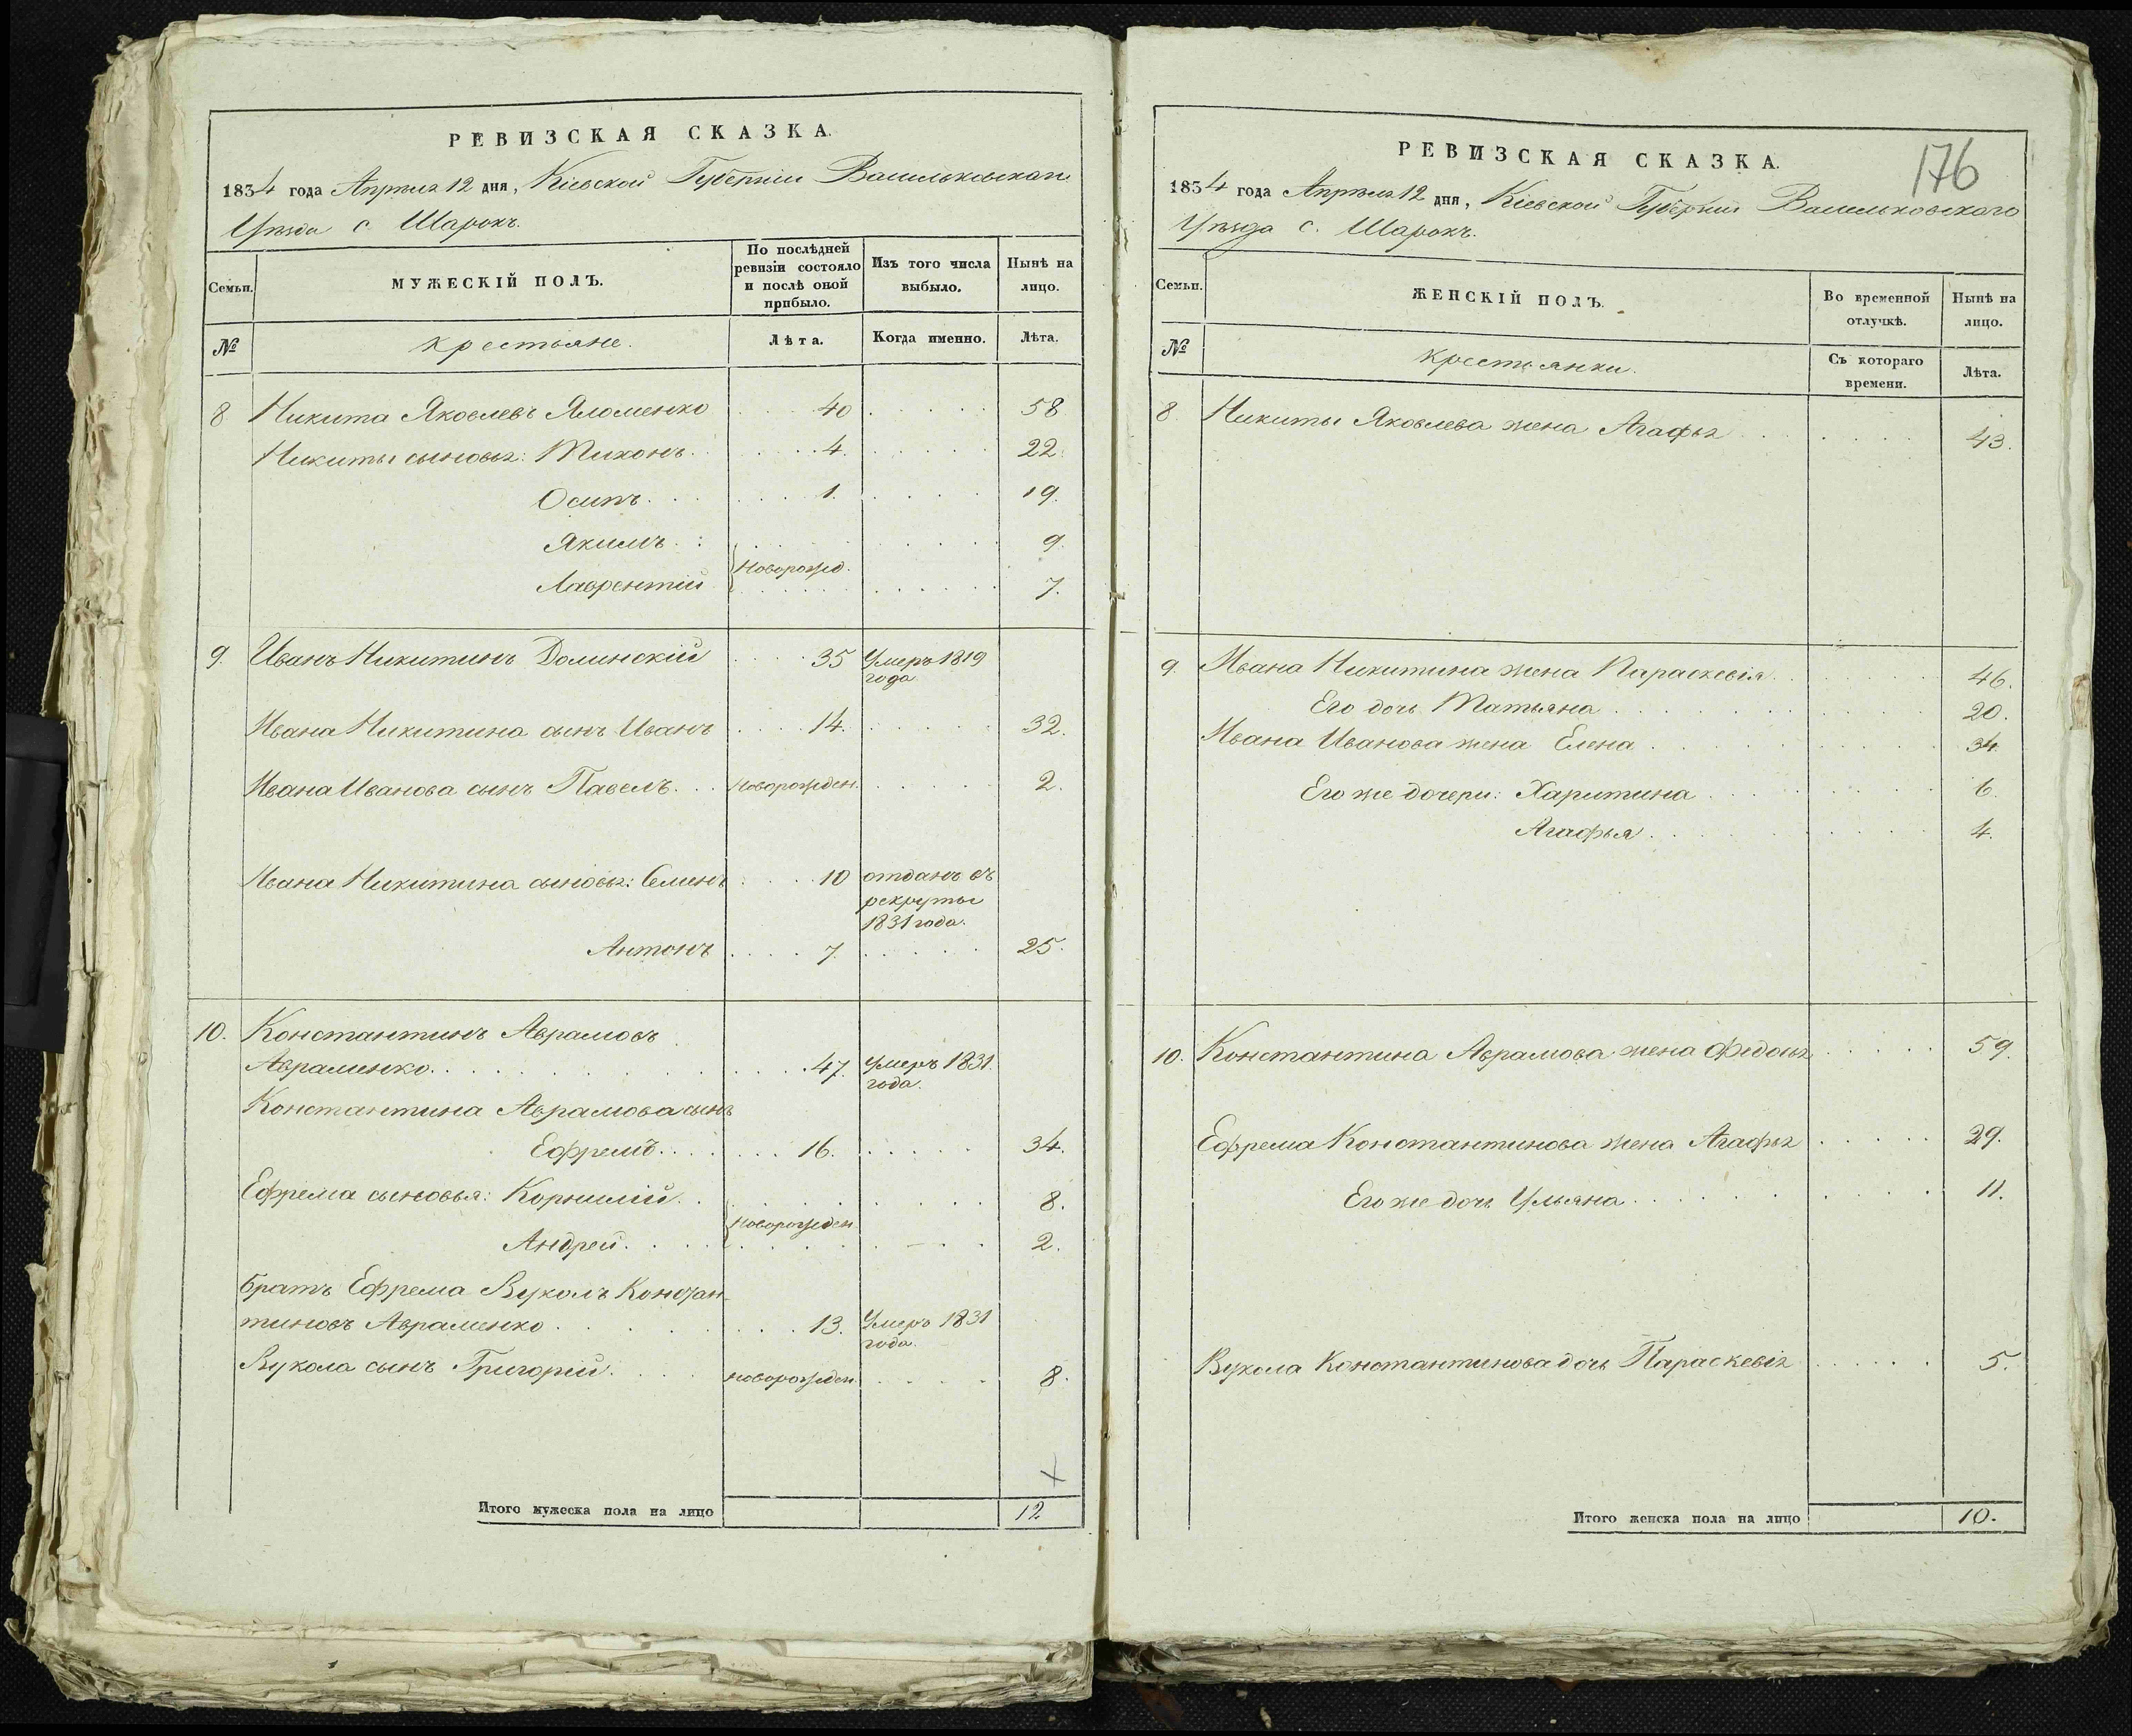 РЕВИЗСКАЯ СКАЗКА.
1834 года Апрѣля 12 дня, Кіевской Губерніи Васильковскаго
Уѣзда с. Шарокъ.
Семьи.
МУЖЕСКІЙ ПОЛЪ.
По послѣдней ревизіи состояло и послѣ оной прибыло.
Изъ того числа выбыло.
Нынѣ на лицо.
№
крестьяне.
Лѣта.
Когда именно.
Лѣта.
8 Никита Яковлевъ Яломенко 40 58
Никиты сыновья: Тихонъ 4. 22.
Осипъ 1. 19.
Якимъ 9.
Новорожд.
Лаврентій 7.
9. Иванъ Никитинъ Долинскій 35 Умеръ 1819
года
Ивана Никитина сынъ Иванъ 14. 32.
Ивана Иванова сынъ Павелъ новорожден. 2.
Ивана Никитина сыновья: Семенъ 10 отданъ въ
рекруты
1831 года.
Антонъ 7. 25.
10. Константинъ Аврамовъ
Авраменко 47. Умеръ 1831.
года.
Константина Аврамова сынъ
Ефремъ 16. 34.
Ефрема сыновья: Корнилій 8.
новорожден
Андрей 2.
братъ Ефрема Вуколъ Констан-
тиновъ Авраменко 13. Умеръ 1831
года.
Вукола сынъ Григорій новорожден. 8.
Итого мужеска пола на лицо 12
176
РЕВИЗСКАЯ СКАЗКА.
1834 года Апрѣля 12 дня, Кіевской Губерніи Васильковскаго
Уѣзда с. Шарокъ.
Семьи.
ЖЕНСКІЙ ПОЛЪ.
Во временной отлучкѣ.
Нынѣ на лицо.
№
крестьянки.
Съ котораго времени.
Лѣта.
8. Никиты Яковлева жена Агафья 43.
9. Ивана Никитина жена Параскевія 46.
Его дочь Татьяна 20.
Ивана Иванова жена Елена 34.
Его же дочери: Харитина 6.
Агафья 4.
10. Константина Аврамова жена Федосья 59.
Ефрема Константинова жена Агафья 29.
Его же дочь Ульяна 11.
Вукола Константинова дочь Параскевія 5.
Итого женска пола на лицо 10.